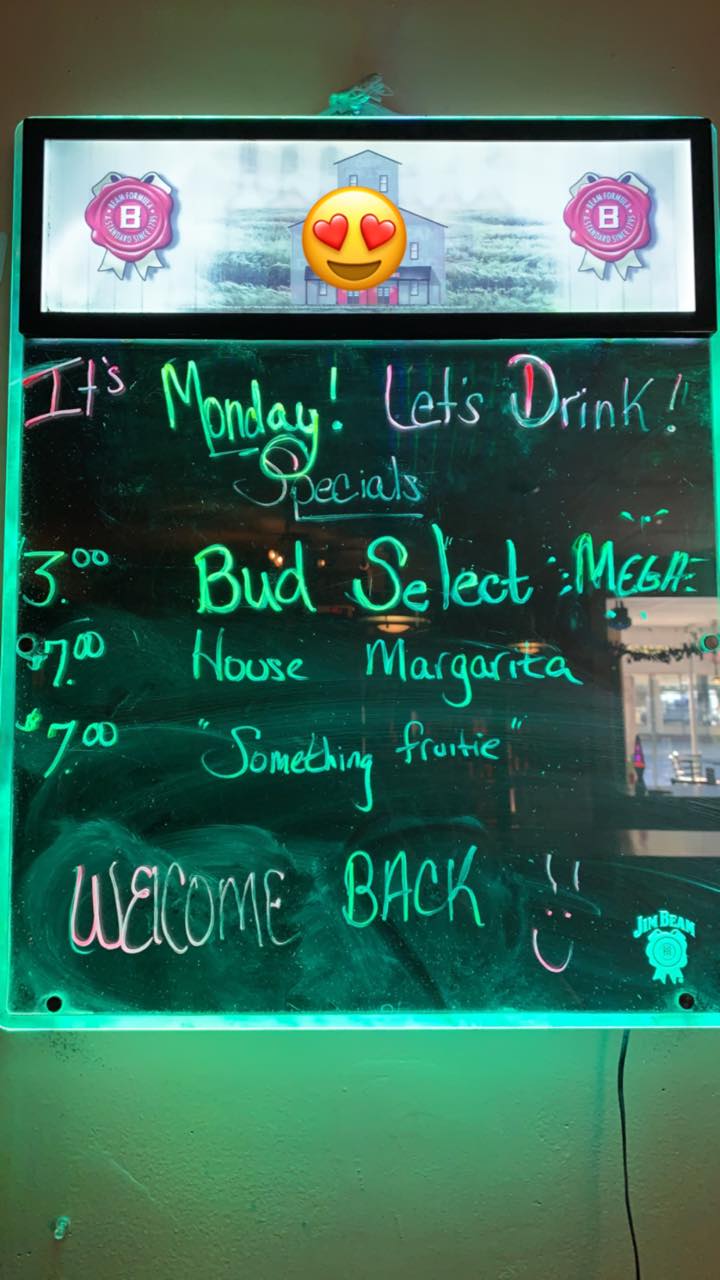 BEAM FORMULA
B
A STANDARD SINCE 1795
BEAM FORMULA
B
A STANDARD SINCE 1795
It's Monday! Let's Drink!
Specials
3.00 Bud Select MEGA
$7.00 House Margarita
$7.00 "Something fruitie"
WElCOME BACK
JIM BEAM